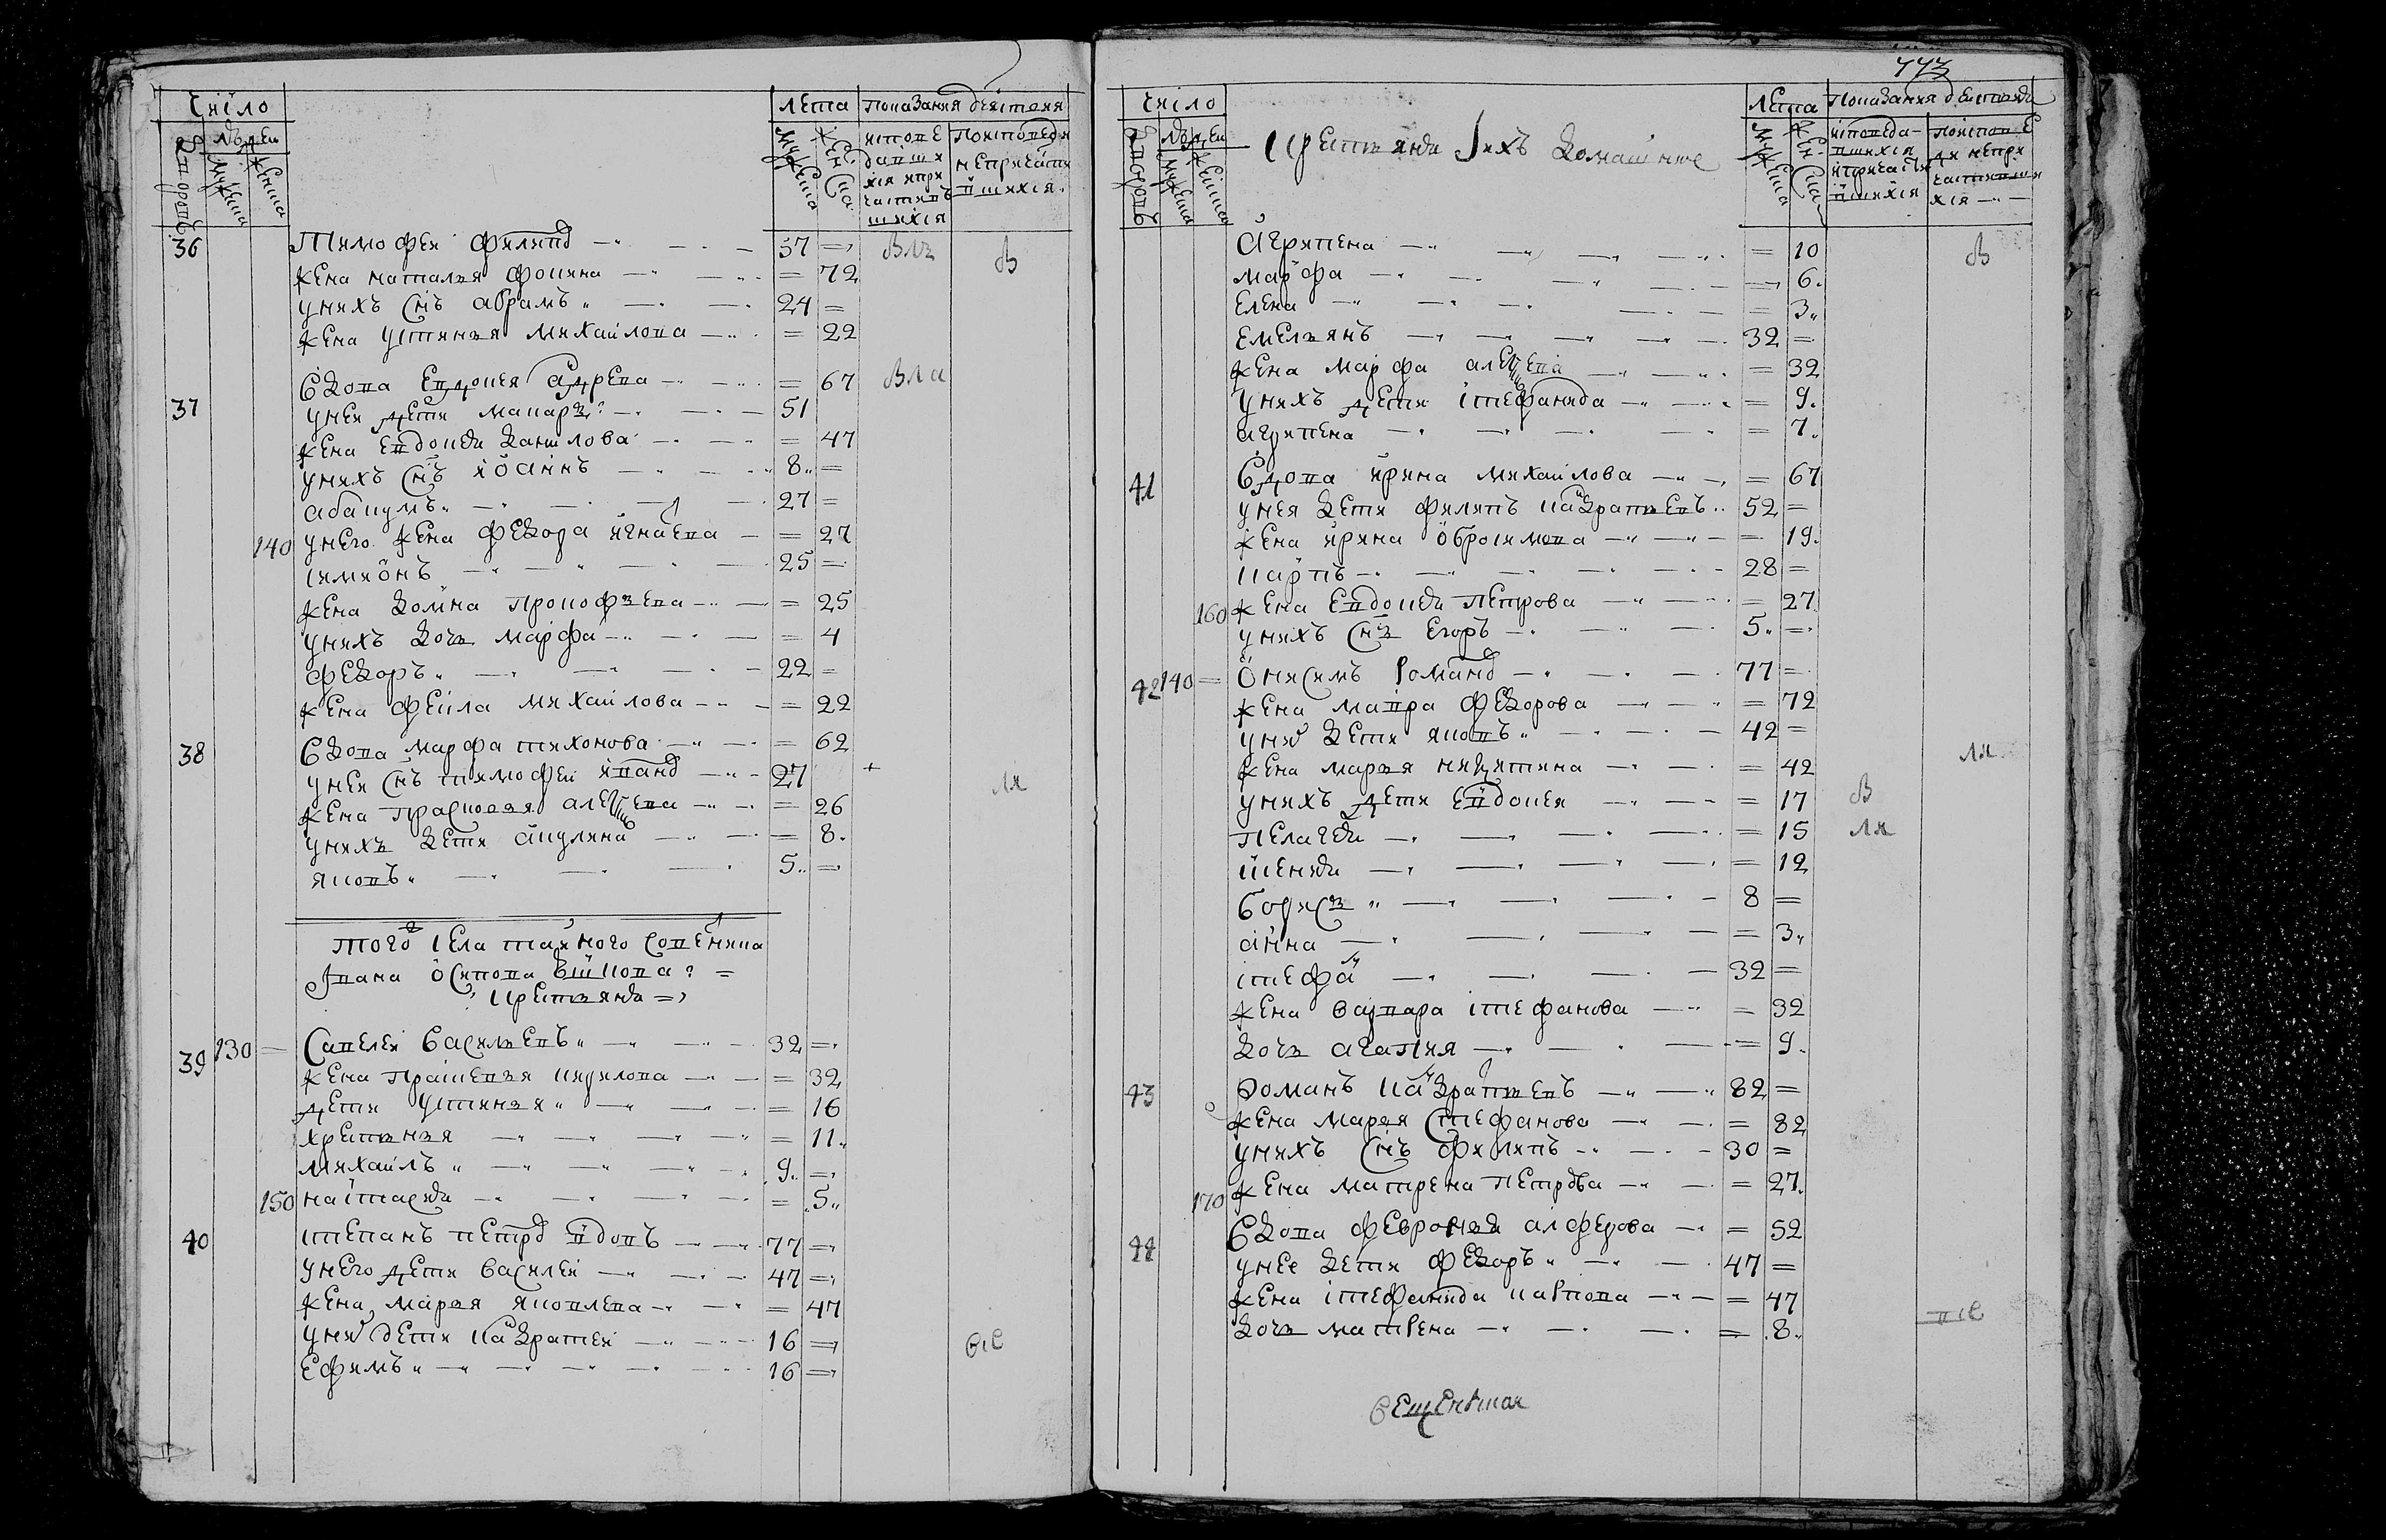 Число
лета
показания действия
дворовъ
людей
мужеска
женска
мужеска
женска
исповедавшихся и причастившихся
по исповеди не причастившихся
36 Тимофей филипо 57 =
жена наталья фокина = 72
у нихъ снъ абрамъ 24 =
жена устинья михайлова = 22
вдова евдокея андрева = 67
37 у нея дети макаръ 51
жена евдокея данилова = 47
у нихъ снъ иоаннъ 8 =
абакумъ 27 =
140 у него жена федора игнаева = 27
симионъ 25 =
жена домна прокофьева = 25
у нихъ дочь марфа = 4
федоръ 22 =
жена фекла михайлова = 22
38 вдова марфа тихонова = 62
у нея снъ тимофей ивано 27
жена прасковья алексеева = 26
у нихъ дети акулина = 8
яковъ 5 =
того села тайного советника
Ивана осипова
крестьяня =
39 130 = савелей василевъ 32 =
жена прасковья кирилова = 32
дети устинья = 16
хрестинья = 11
михайлъ 9 =
150 настасия = 5
40 степанъ петро вдовъ 77 =
у него дети василей 47 =
жена марья яковлева = 47
у нихъ дети кандратей 16 =
ефимъ 16 =
773
Число
крестьяня и ихъ домашние
лета
показания действия
дворовъ
людей
мужеска
женска
мужеска
женска
исповедавшихся и причастившихся
по исповеди не причастившихся
агрипена = 10
марфа = 6
елена = 3
емельянъ 32 =
жена марфа алексеева = 32
у нихъ дети стефанида = 9
агрипена = 7
41 вдова ирина михайлова = 67
у нея дети филипъ кандратьевъ 52 =
жена ирина = 19
карпъ 28 =
160 жена евдокия петрова = 27
у нихъ снъ егоръ 5 =
42 140 = онисимъ романо 77 =
жена мавра федорова = 72
у нихъ дети яковъ 42 =
жена марья никитина = 42
у нихъ дети евдокея = 17
пелагея = 15
ксения = 12
борисъ 8 =
анна = 3
стефанъ 32 =
жена варвара стефанова = 32
дочь агапия = 9
43 романъ кандратьевъ 82 =
жена марья стефанова = 82
у нихъ снъ филипъ 30 =
170 жена матрена петрова = 27
вдова февронья алферова = 52
44 у нее дети федоръ 47 =
жена стефанида карпова = 47
дочь матрена = 8